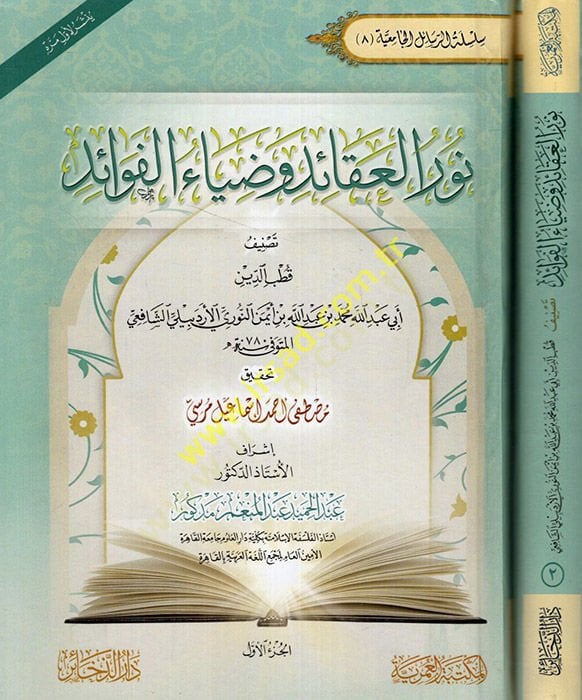 ينشر لأول مرة
سلسلة الرسائل الجامعية (٨)
نور العقائد وضياء الفوائد
تصنيف
قطب الدين
أبي عبد الله محمد بن عبد الله بن أيمن النوري الأردبيلي الشافعي
المتوفى ٧٨٠ هـ
تحقيق
مصطفى أحمد إسماعيل مرسي
إشراف
الأستاذ الدكتور
عبد الحميد عبد المنعم مدكور
أستاذ الفلسفة الإسلامية بكلية دار العلوم جامعة القاهرة
الأمين العام لمجمع اللغة العربية بالقاهرة
الجزء الأول
المكتبة العمرية
دار الذخائر
المكتبة العمرية
نور العقائد وضياء الفوائد
تصنيف
قطب الدين أبي عبد الله محمد بن عبد الله بن أيمن النوري الأردبيلي الشافعي
٢
دار الذخائر